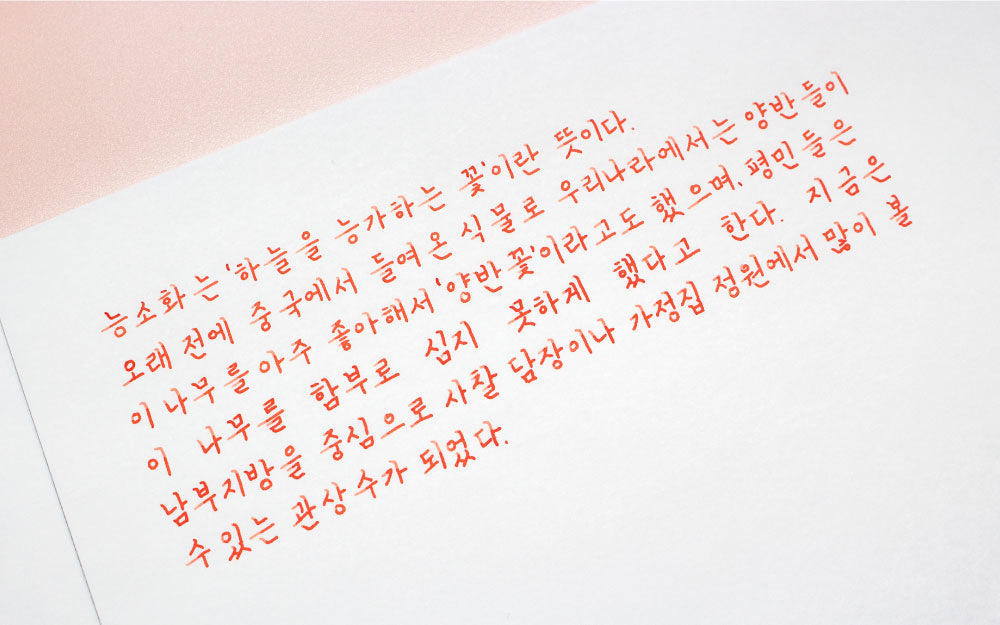 능소화는 '하늘을 능가하는 꽃'이란 뜻이다.
오래 전에 중국에서 들여온 식물로 우리나라에서는 양반들이
이 나무를 아주 좋아해서 '양반꽃'이라고도 했으며, 평민들은
이 나무를 함부로 심지 못하게 했다고 한다. 지금은
남부지방을 중심으로 사찰 담장이나 가정집 정원에서 많이 볼
수 있는 관상수가 되었다.